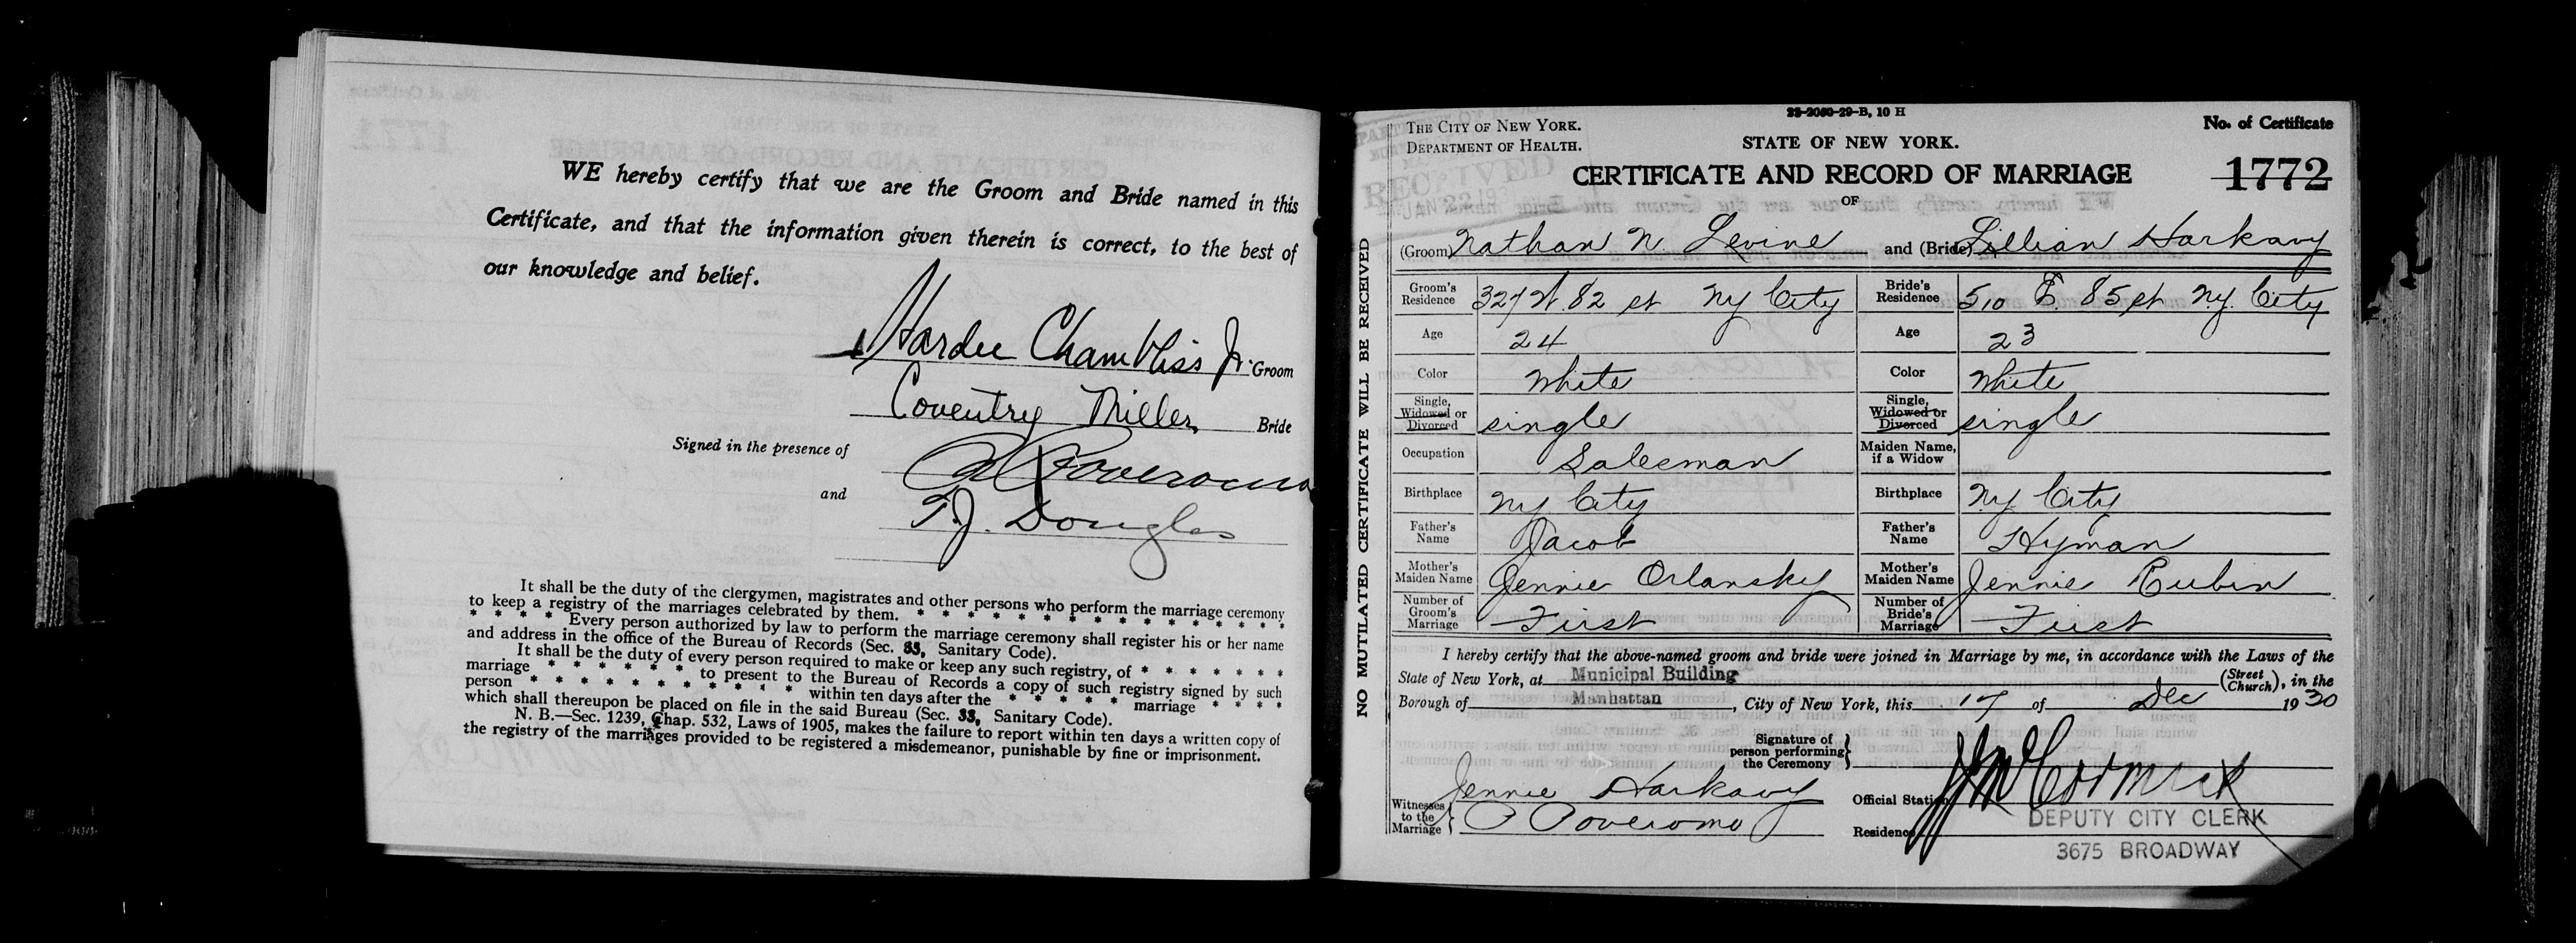 WE hereby certify that we are the Groom and Bride named in this
Certificate, and that the information given therein is correct, to the best of
our knowledge and belief.
Hardee Chambliss Jr. Groom
Coventry Miller Bride
Signed in the presence of
and
T.J. Douglas
It shall be the duty of the clergymen, magistrates and other persons who perform the marriage ceremony
to keep a registry of the marriages celebrated by them. * * * * * * * * * * * * *
* * * * Every person authorized by law to perform the marriage ceremony shall register his or her name
and address in the office of the Bureau of Records (Sec. 33, Sanitary Code).
It shall be the duty of every person required to make or keep any such registry, of * * * * * * *
marriage * * * * * * * to present to the Bureau of Records a copy of such registry signed by such
person * * * * * * * * * * * * within ten days after the * * * * * marriage * * * *
which shall thereupon be placed on file in the said Bureau (Sec. 33, Sanitary Code).
N. B.—Sec. 1239, Chap. 532, Laws of 1905, makes the failure to report within ten days a written copy of
the registry of the marriages provided to be registered a misdemeanor, punishable by fine or imprisonment.
NO MUTILATED CERTIFICATE WILL BE RECEIVED
RECEIVED
JAN 22 193
THE CITY OF NEW YORK.
DEPARTMENT OF HEALTH.
23-2060-29-B, 10 H
STATE OF NEW YORK.
CERTIFICATE AND RECORD OF MARRIAGE
OF
No. of Certificate
1772
(Groom) Nathan N. Levine and (Bride) Lillian Harkavy
Groom's Residence 327 W. 82 st NY City Bride's Residence 510 E. 85 st N.Y. City
Age 24 Age 23
Color White Color White
Single, Widowed or Divorced single Single, Widowed or Divorced single
Occupation Salesman Maiden Name, if a Widow
Birthplace NY City Birthplace N.Y. City
Father's Name Jacob Father's Name Hyman
Mother's Maiden Name Jennie Orlansky Mother's Maiden Name Jennie Rubin
Number of Groom's Marriage First Number of Bride's Marriage First
I hereby certify that the above-named groom and bride were joined in Marriage by me, in accordance with the Laws of the
State of New York, at Municipal Building (Street Church), in the
Borough of Manhattan, City of New York, this 17 of Dec 1930
Signature of person performing the Ceremony } J J McCormick
Witnesses to the Marriage } Jennie Harkavy
P Poveromo
Official Station DEPUTY CITY CLERK
Residence 3675 BROADWAY